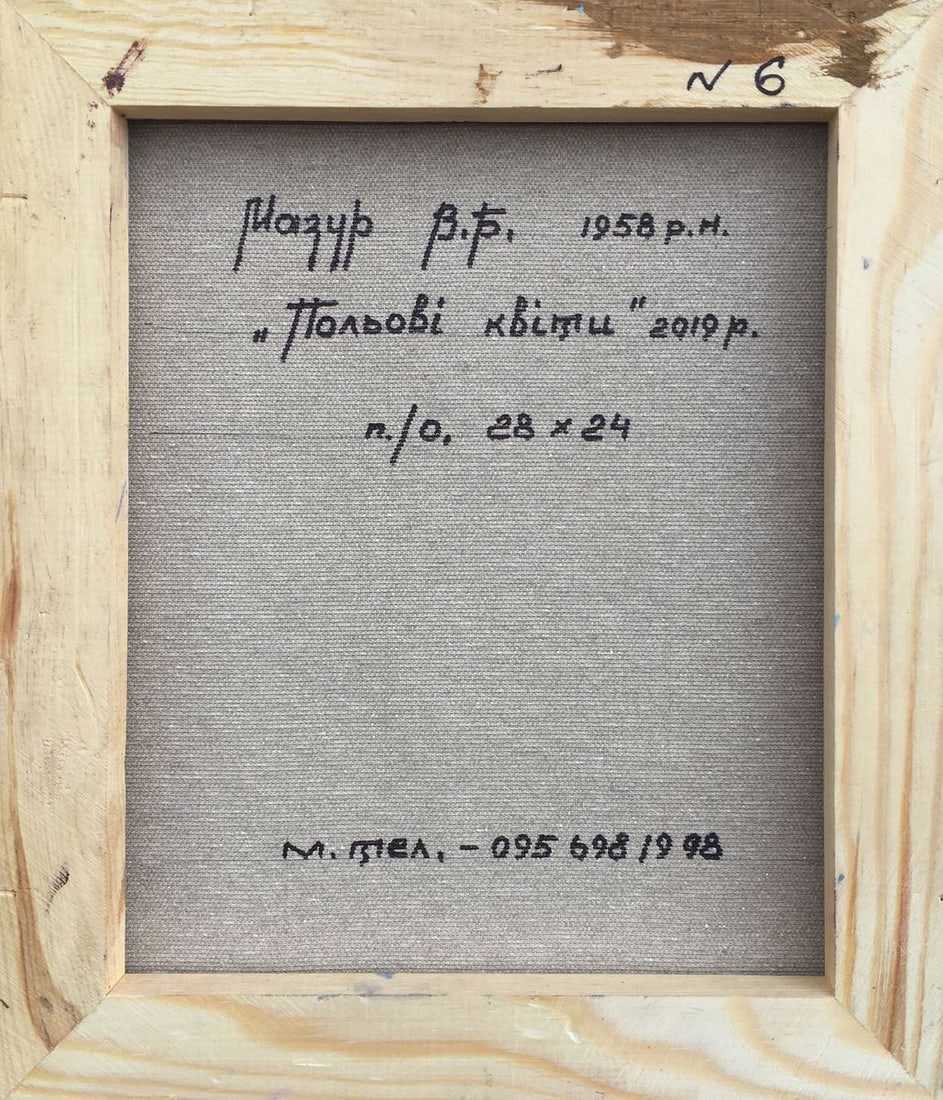 N 6
Мазур В.Б. 1958 р.н.
„Польові квіти" 2019 р.
п./о. 28 x 24
м. тел. - 095 698 19 98